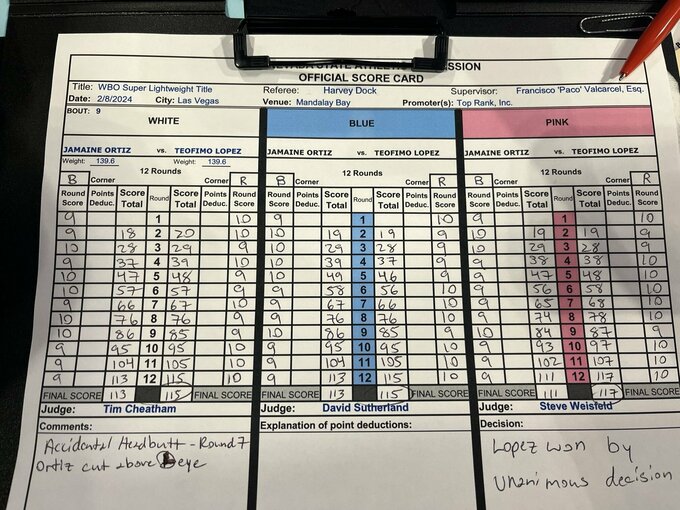 STATE SSION
OFFICIAL SCORE CARD
Title: WBO Super Lightweight Title Referee: Harvey Dock Supervisor: Francisco 'Paco' Valcarcel, Esq.
Date: 2/8/2024 City: Las Vegas Venue: Mandalay Bay Promoter(s): Top Rank, Inc.
BOUT: 9
WHITE BLUE PINK
JAMAINE ORTIZ vs. TEOFIMO LOPEZ JAMAINE ORTIZ vs. TEOFIMO LOPEZ JAMAINE ORTIZ vs. TEOFIMO LOPEZ
Weight: 139.6 Weight: 139.6
12 Rounds 12 Rounds 12 Rounds
B Corner Corner R B Corner Corner R B Corner Corner R
Round Score Points Deduc. Score Total Round Score Total Points Deduc. Round Score Round Score Points Deduc. Score Total Round Score Total Points Deduc. Round Score Round Score Points Deduc. Score Total Round Score Total Points Deduc. Round Score
9 1 10 9 1 10 9 1 10
9 18 2 20 10 10 19 2 19 9 10 19 2 19 9
10 28 3 29 9 10 29 3 28 9 10 29 3 28 9
9 37 4 39 10 10 39 4 37 9 9 38 4 38 10
10 47 5 48 9 10 49 5 46 9 9 47 5 48 10
10 57 6 57 9 9 58 6 56 10 9 56 6 58 10
9 66 7 67 10 9 67 7 66 10 9 65 7 68 10
10 76 8 76 9 9 76 8 76 10 9 74 8 78 10
10 86 9 85 9 10 86 9 85 9 10 84 9 87 9
9 95 10 95 10 9 95 10 95 10 9 93 10 97 10
9 104 11 105 10 9 104 11 105 10 9 102 11 107 10
9 113 12 115 10 9 113 12 115 10 9 111 12 117 10
FINAL SCORE 113 115 FINAL SCORE FINAL SCORE 113 115 FINAL SCORE FINAL SCORE 111 117 FINAL SCORE
Judge: Tim Cheatham Judge: David Sutherland Judge: Steve Weisfeld
Comments: Explanation of point deductions: Decision:
Accidental Headbutt - Round 7
Ortiz cut above L eye
Lopez won by
Unanimous decision